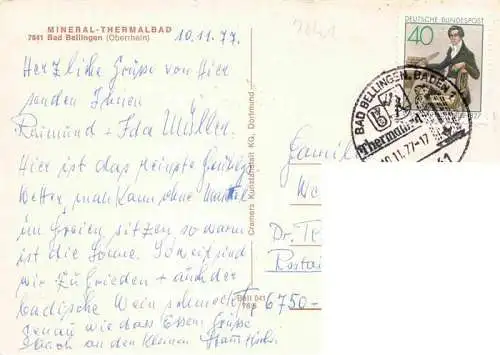 MINERAL-THERMALBAD
7841 Bad Bellingen (Oberrhein)
10.11.77.
7841
DEUTSCHE BUNDESPOST
40
BAD BELLINGEN, BADEN
Thermalbad
10.11.77-17
Herzliche Grüße von hier
senden Ihnen
Raimund + Ida Müller.
Hier ist das
Wetter, man kann ohne Mantel
im Freien sitzen so warm
ist die Sonne. Soweit sind
wir zufrieden + auch der
badische Wein schmeckt,
genau wie das Essen. Grüße
auch an den kleinen
Cramers Kunstanstalt KG, Dortmund
Bell 041
Famil
Dr. Te
6750-